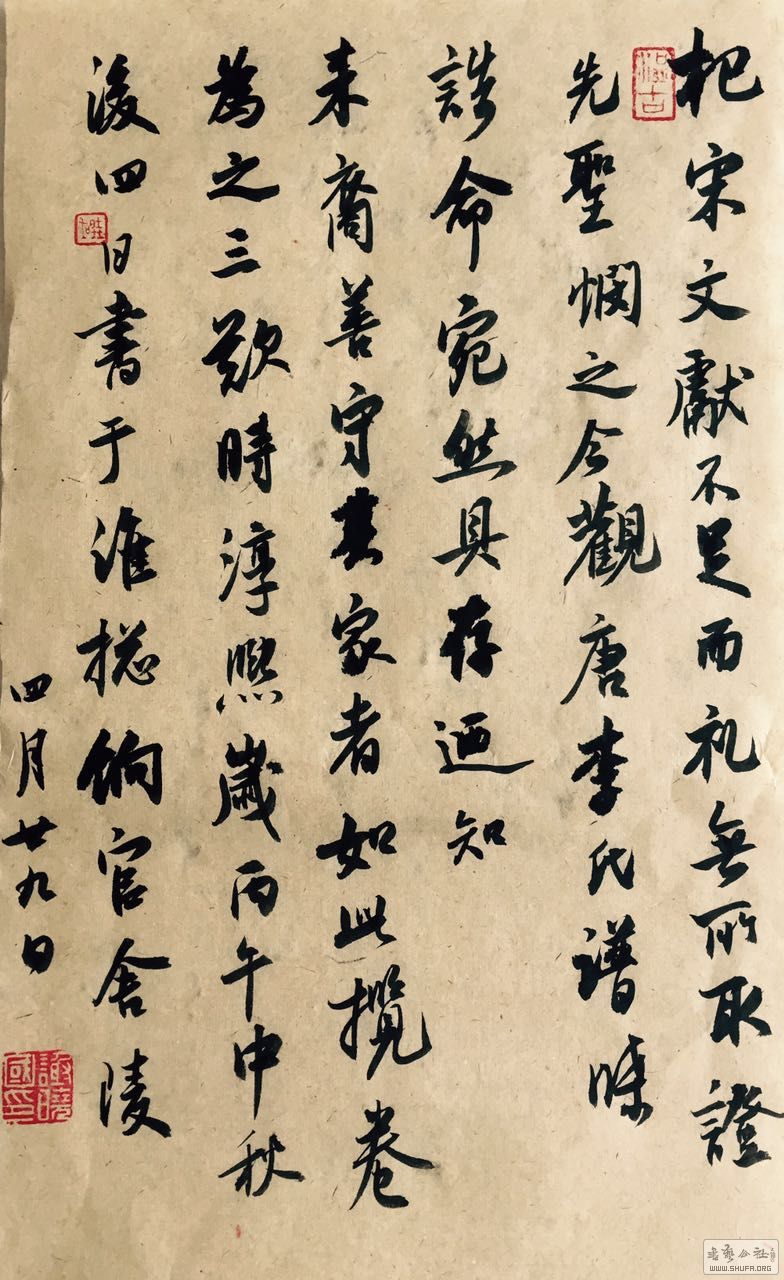 杞宋文獻不足而礼無所取證
先聖憫之今觀唐李氏譜牒
誥命宛然具存迺知
来裔善守其家者如此攬卷
為之三歎時淳熙歲丙午中秋
後四日書于淮揔餉官舍陵
四月廿九日
書藝公社
WWW.SHUFA.ORG